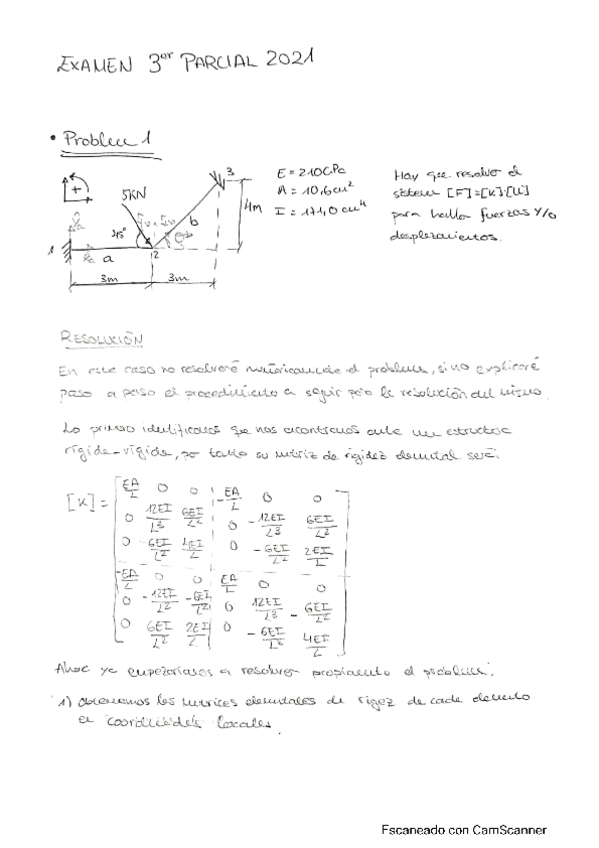 EXAMEN 3er PARCIAL 2021
• Problem 1
E = 210 GPa
A = 10,6 cm²
I = 171,0 cm⁴
Hay que resolver el
sistema [F]=[K]·[U]
para hallar fuerzas y/o
desplazamientos.
5KN
45°
3
4m
b
1
a
2
3m
3m
RESOLUCIÓN
En este caso no resolveré numéricamente el problema, sino explicaré
paso a paso el procedimiento a seguir para la resolución del mismo.
Lo primero identificamos que nos encontramos ante una estructura
rígida-rígida, por tanto su matriz de rigidez elemental será:
[K] =
EA/L 0 0 -EA/L 0 0
0 12EI/L³ 6EI/L² 0 -12EI/L³ 6EI/L²
0 6EI/L² 4EI/L 0 -6EI/L² 2EI/L
-EA/L 0 0 EA/L 0 0
0 -12EI/L² -6EI/L² 0 12EI/L³ -6EI/L²
0 6EI/L² 2EI/L 0 -6EI/L² 4EI/L
Ahora ya empezaríamos a resolver propiamente el problema.
1) obtenemos las matrices elementales de rigez de cada elemento
en coordenadas locales.
Escaneado con CamScanner